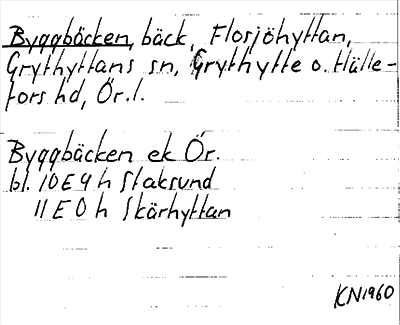 Byggbäcken, bäck, Flosjöhyttan,
Grythyttans sn, Grythytte o. Hälle-
fors hd, Ör.l.
Byggbäcken ek Ör.
bl. 10E9h Staksund
11E0h Skärhyttan
KN1960